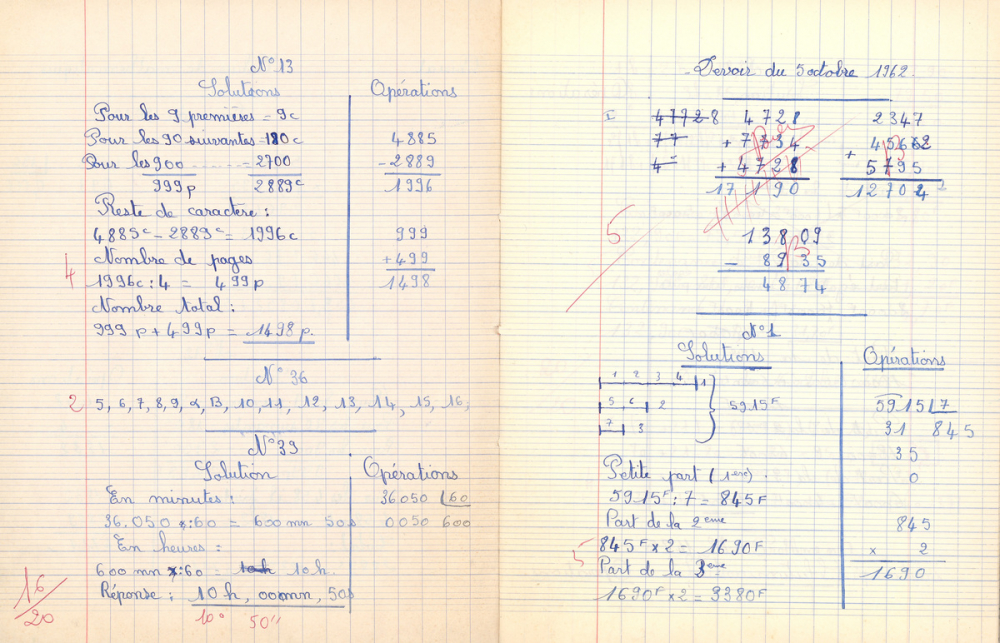 N° 13
Solutions Opérations
Pour les 9 premières = 9c
Pour les 90 suivantes = 180c 4885
Pour les 900 ........ = 2700 - 2889
999p 2889c 1996
Reste de caractère :
4885c - 2889c = 1996c 999
Nombre de pages + 499
4 1996c : 4 = 499p 1498
Nombre total :
999 p + 499p = 1498 p.
N° 36
2 5, 6, 7, 8, 9, α, B, 10, 11, 12, 13, 14, 15, 16,
N° 39
Solution Opérations
En minutes : 36050 60
36.050 s : 60 = 600 mn 50s 0050 600
En heures :
600 mn : 60 = 10h 10 h.
Réponse : 10 h, 00mn, 50s
10h 50"
16/20
Devoir du 5 octobre 1962.
I 47728 4728 2347
77 + 7734 + 4562
4 + 4728 5795
17190 12704
5 13809
- 8935
4874
N° 1
Solutions Opérations
1 2 3 4 1
5 6 2 5915F 5915 7
7 3 31 845
35
Petite part (1ère) . 0
5915F : 7 = 845F
Part de la 2ème 845
5 845F x 2 = 1690F x 2
Part de la 3ème 1690
1690F x 2 = 3380F